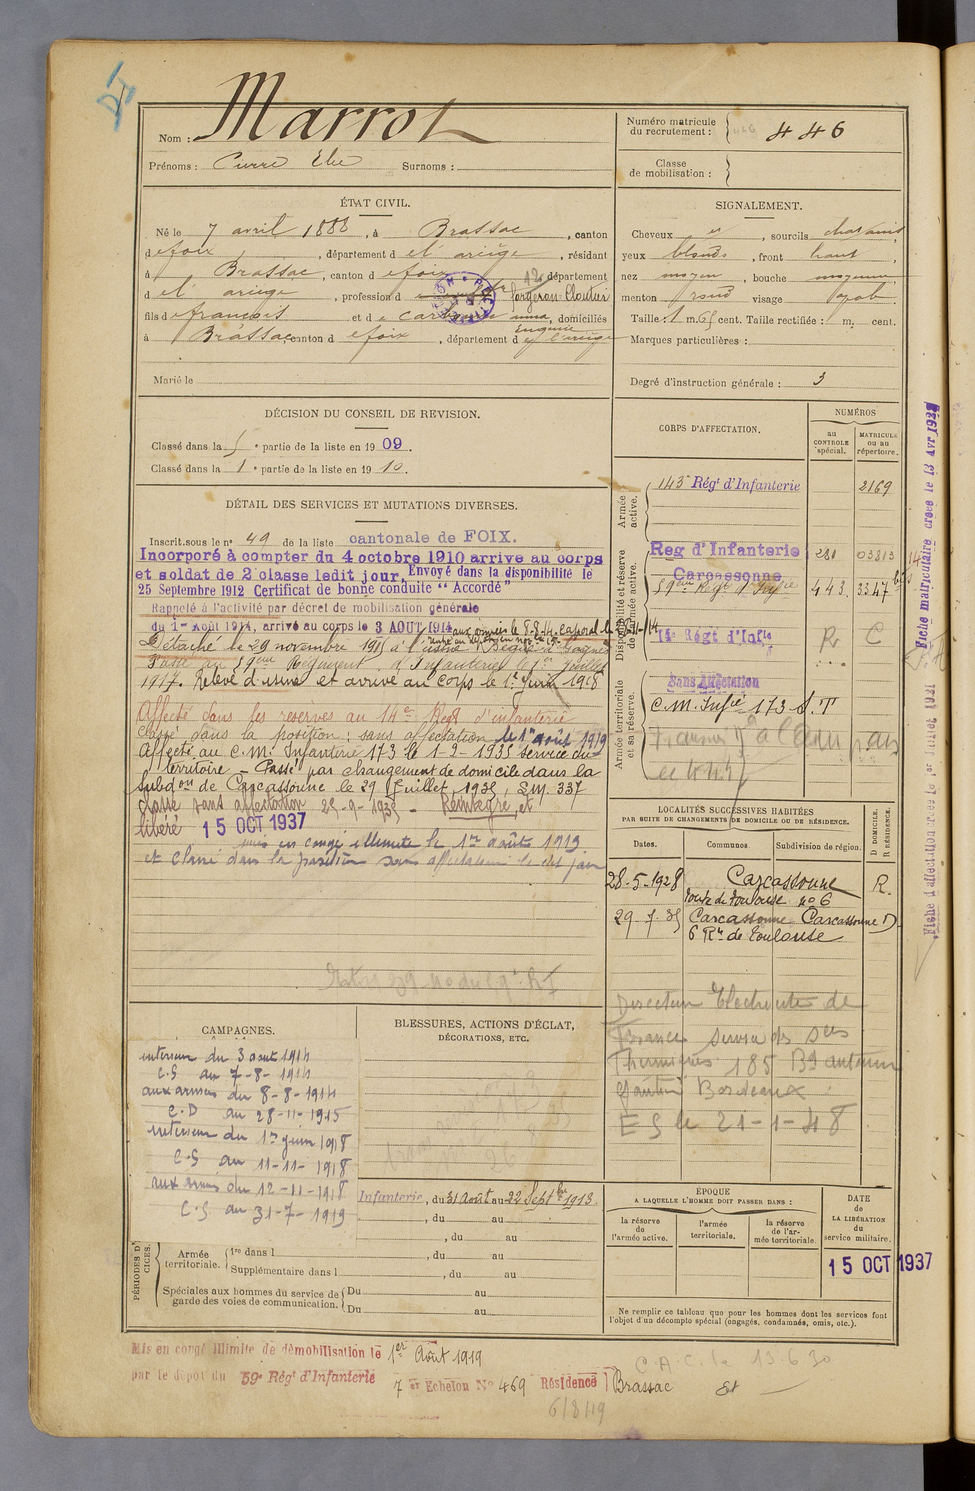 Nom : Marrot
Prénoms : Pierre Elie Surnoms :
Numéro matricule du recrutement : 446
Classe de mobilisation :
ÉTAT CIVIL.
Né le 7 avril 1888, à Brassac, canton
de foix, département de l'ariège, résidant
à Brassac, canton de foix, département
de l'ariège, profession de Forgeron-Cloutier
fils de françois et de anna, domiciliés
Eugénie
à Brassac canton de foix, département de l'ariège
Marié le
SIGNALEMENT.
Cheveux et, sourcils chatains
yeux blonds, front haut,
nez moyen, bouche moyenne,
menton rond visage
Taille : 1 m. 65 cent. Taille rectifiée : m. cent.
Marques particulières :
Degré d'instruction générale : 3
DÉCISION DU CONSEIL DE REVISION.
Classé dans la 5e partie de la liste en 1909.
Classé dans la 1e partie de la liste en 1910.
DÉTAIL DES SERVICES ET MUTATIONS DIVERSES.
Inscrit sous le no 49 de la liste cantonale de FOIX.
Incorporé à compter du 4 octobre 1910 arrive au corps
et soldat de 2e classe ledit jour, Envoyé dans la disponibilité le
25 Septembre 1912 Certificat de bonne conduite "Accordé"
Rappelé à l'activité par décret de mobilisation générale
du 1er Août 1914, arrivé au corps le 3 AOUT 1914 aux armées le 8-8-14. caporal le
Détaché le 29 novembre 1915 à l'usine
Passé au 59ème Régiment d'Infanterie le 1er juillet
1917. Relevé d'usine et arrivé au corps le 1er Juin 1918
Affecté dans les reserves au 14e Regt d'infanterie
Classé dans la position : sans affectation le 1er août 1919
Affecté au C.M. Infanterie 173 le 1-2-1935 Service du
territoire - Passé par changement de domicile dans la
Subdon de Carcassonne le 29 Juillet 1935, S.M. 337
Classé sans affectation - Réintégré, et
libéré 15 OCT 1937
mis en congé illimité le 1er août 1919
et classé dans la position sans affectation le dit jour
CORPS D'AFFECTATION.
NUMÉROS
au CONTROLE spécial.
MATRICULE ou au répertoire.
Armée active.
143e Régt d'Infanterie 2169
Disponibilité et réserve de l'armée active.
Reg d'Infanterie 281 03813
Carcassonne
59ème Régt d'Infie 443. 3347 bis
14e Régt d'Infie R C
Armée territoriale et sa réserve.
Sans Affectation
C.M. Infie 173 S.T
LOCALITÉS SUCCESSIVES HABITÉES
PAR SUITE DE CHANGEMENTS DE DOMICILE OU DE RÉSIDENCE.
Dates. Communes. Subdivision de région.
D DOMICILE. R RÉSIDENCE.
28-5-1928 Carcassonne R.
route de Toulouse no 6
29-7-35 Carcassonne Carcassonne D
6 Rte de Toulouse
Directeur Electricité de
France Service des
Thermiques 185 Bd
Bordeaux
le 21-1-48
CAMPAGNES.
interieur du 3 aout 1914
C.S au 7-8-1914
aux armées du 8-8-1914
C.D au 28-11-1915
interieur du 1er juin 1918
C.S au 11-11-1918
aux armées du 12-11-1918
C.S au 31-7-1919
BLESSURES, ACTIONS D'ÉCLAT, DÉCORATIONS, ETC.
Infanterie, du 31 Août au 22 Septbre 1913.
, du au
, du au
PÉRIODES D'EXERCICES.
Armée territoriale. 1re dans l , du au
Supplémentaire dans l , du au
Spéciales aux hommes du service de garde des voies de communication. Du au
Du au
ÉPOQUE
A LAQUELLE L'HOMME DOIT PASSER DANS :
la réserve de l'armée active.
l'armée territoriale.
la réserve de l'armée territoriale.
DATE DE LA LIBÉRATION du service militaire.
15 OCT 1937
Ne remplir ce tableau que pour les hommes dont les services font
l'objet d'un décompte spécial (engagés, condamnés, omis, etc.).
Mis en congé illimité de démobilisation le 1er Août 1919
par le dépôt du 59e Régt d'Infanterie
7er Echelon No 469 Résidence Brassac
C.A.C. le 13-6-30
6/8/19
Fiche matriculaire créée le 13 Avr
Fiche d'affectation créée le